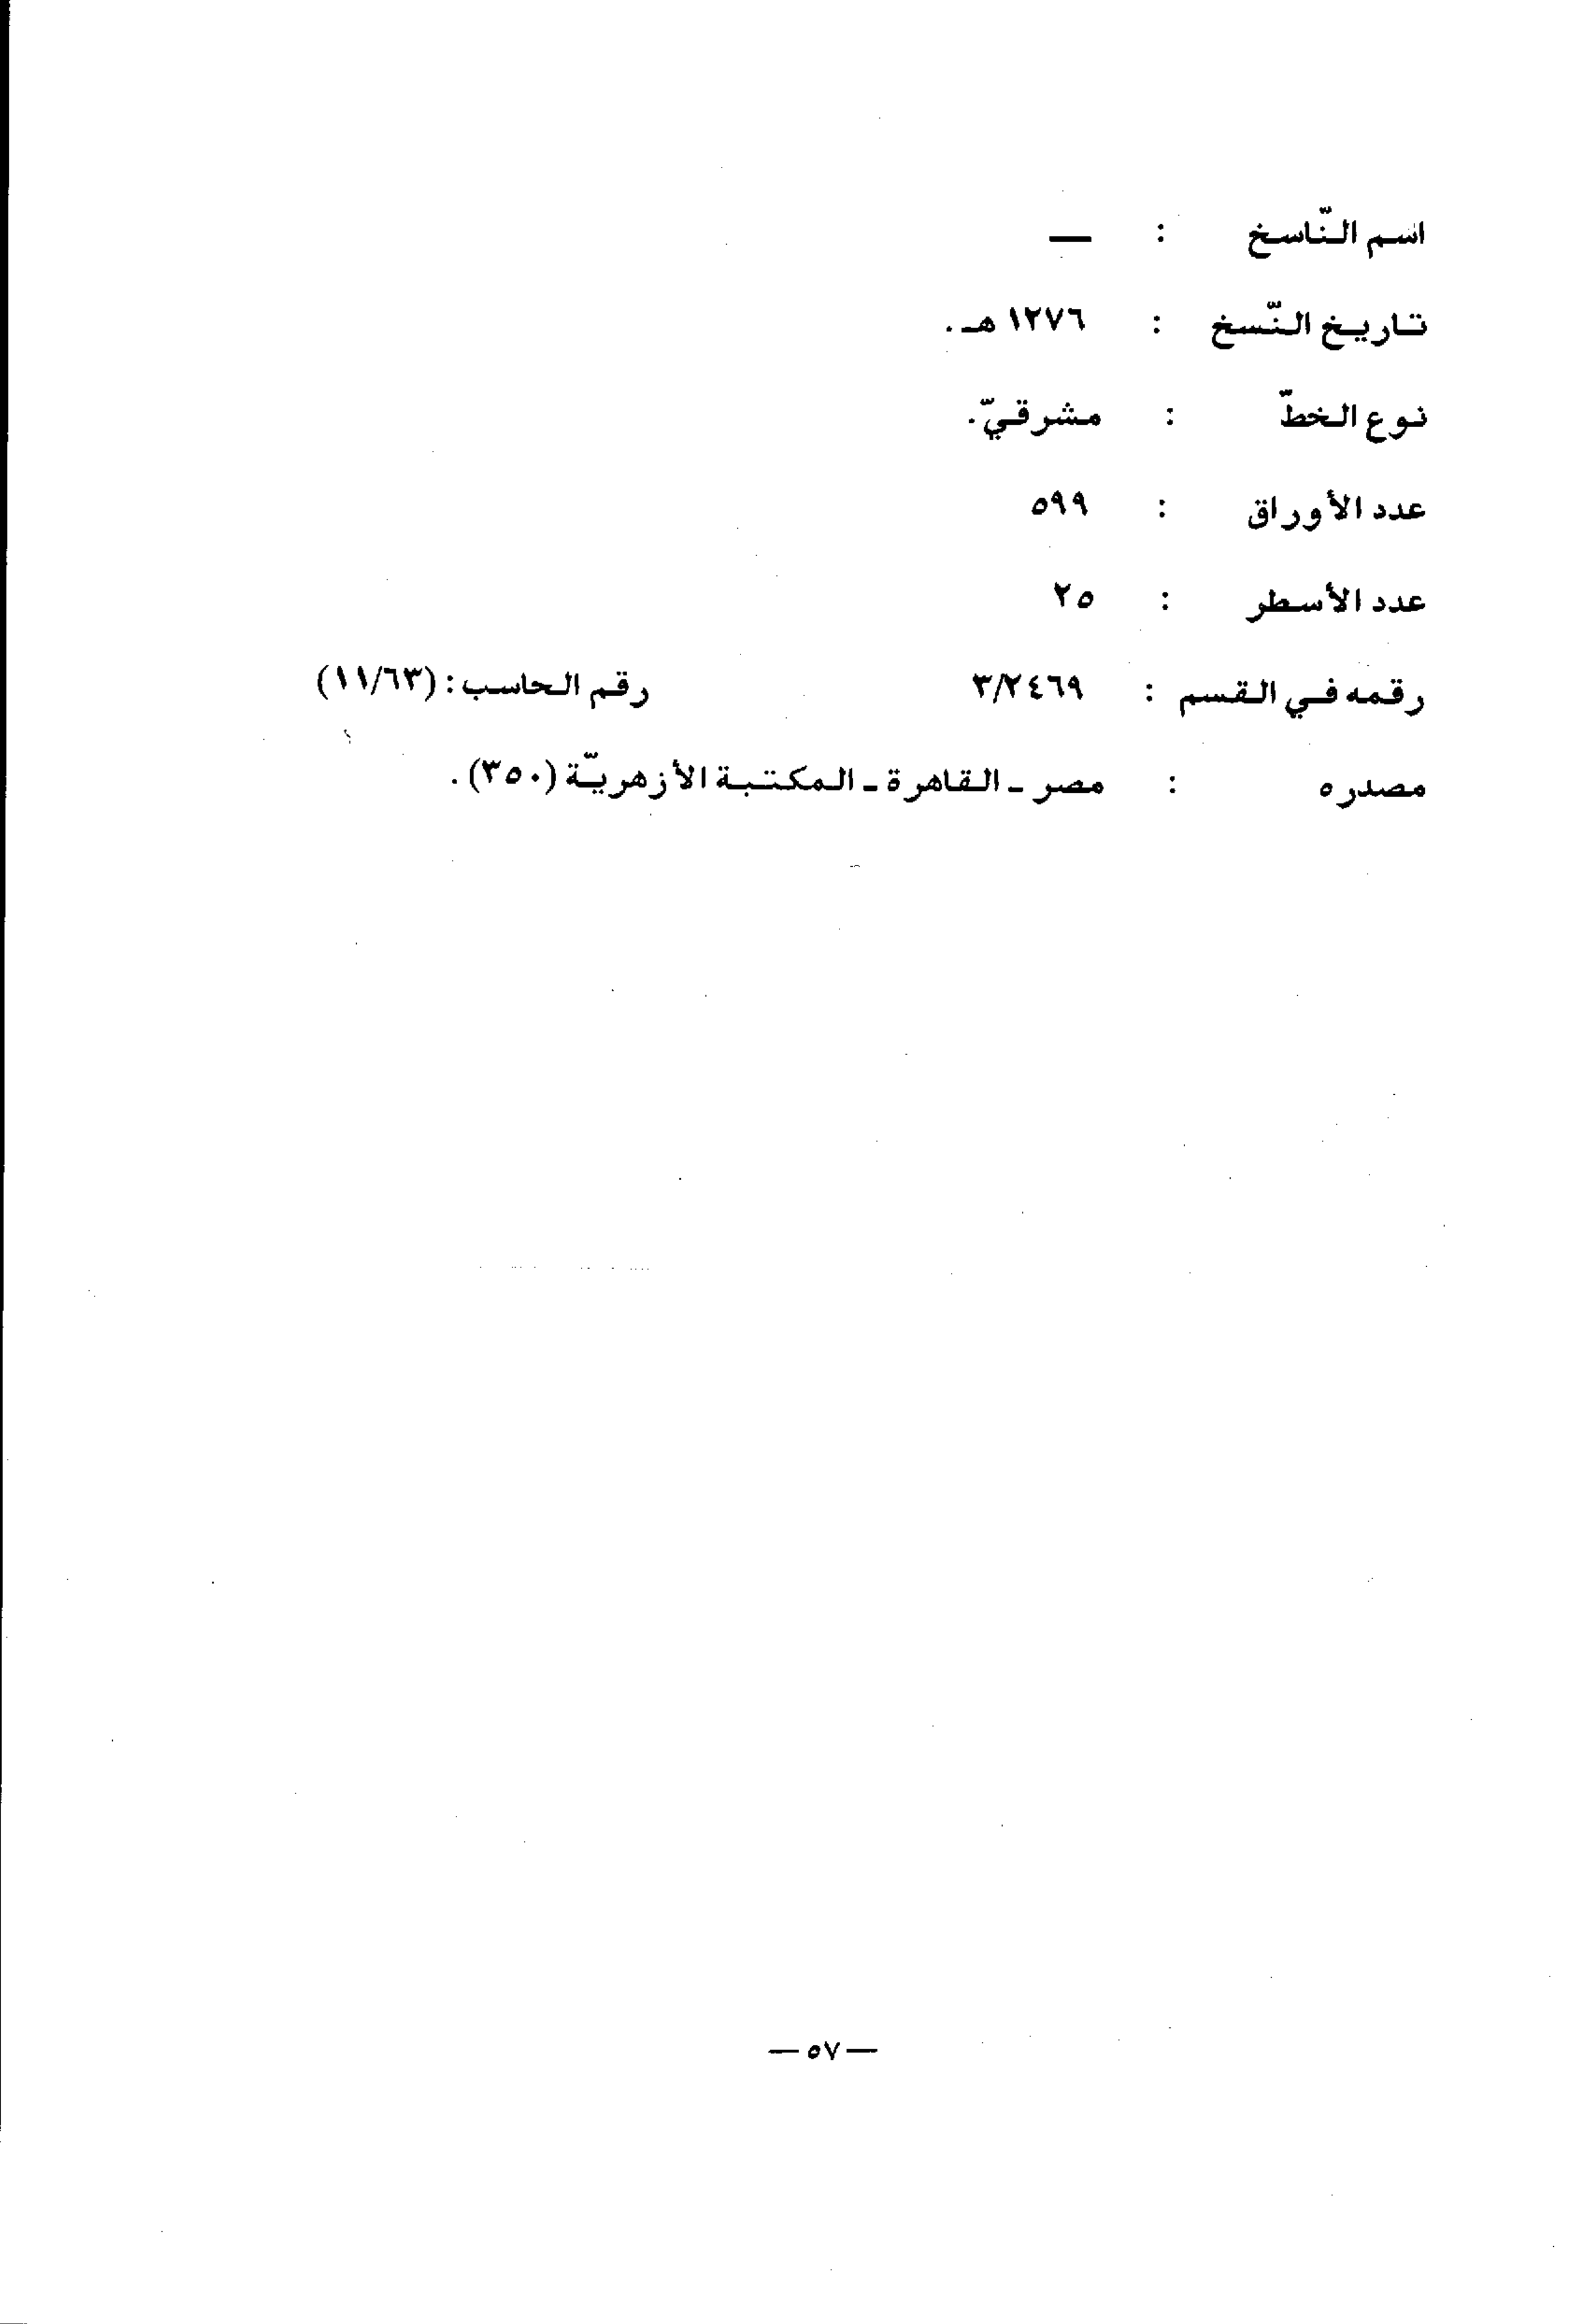 اسم النّاسخ : —
تاريخ النّسخ : ١٢٧٦ هـ.
نوع الخطّ : مشرقيّ.
عدد الأوراق : ٥٩٩
عدد الأسطر : ٢٥
رقمه في القسم : ٣/٢٤٦٩ رقم الحاسب: (١١/٦٣)
مصدره : مصر ـ القاهرة ـ المكتبة الأزهريّة (٣٥٠).
— ٥٧ —